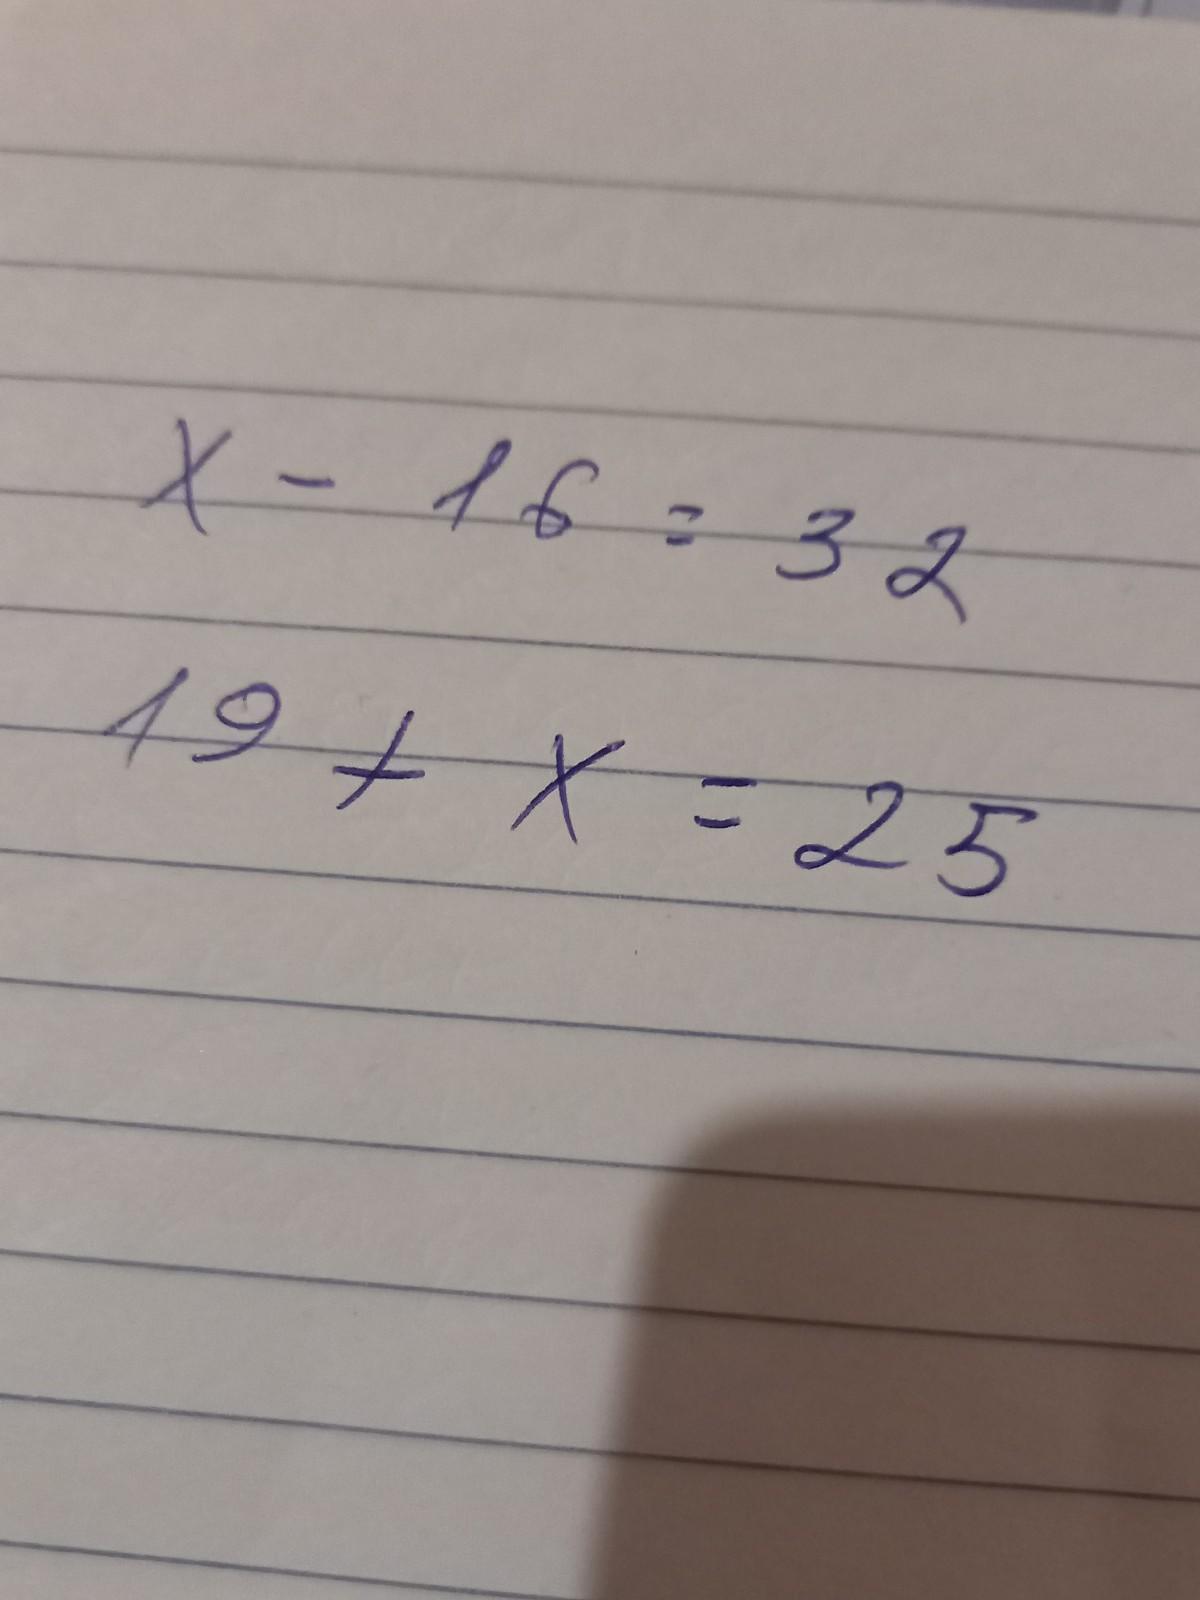 x - 16 = 32
19 + x = 25